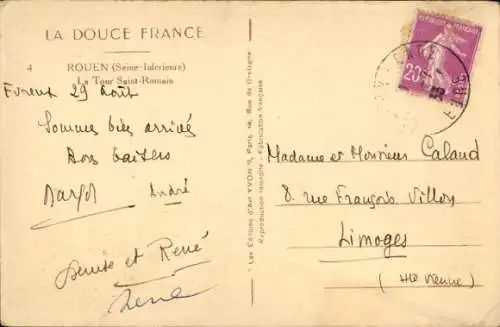 LA DOUCE FRANCE
4 ROUEN (Seine-Inférieure)
La Tour Saint-Romain
29 Août
Sommes bien arrivés
Bons baisers
Margot André
Denise et René
René
Les Editions d'Art YVON, Paris, 14, Rue de Bretagne
Reproduction interdite - Fabrication française
REPUBLIQUE FRANÇAISE
20c
EURE
Madame et Monsieur Caland
8 rue François Villon
Limoges
(Hte Vienne)